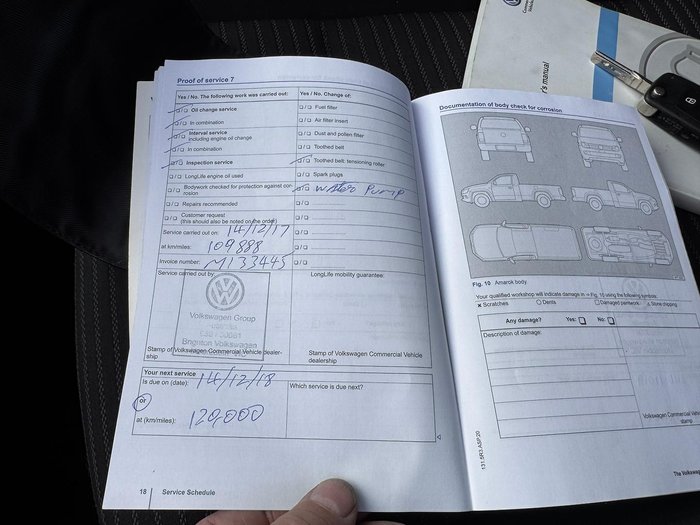 Proof of service 7
Yes / No. The following work was carried out:
Oil change service
In combination
Interval service
including engine oil change
In combination
Inspection service
LongLife engine oil used
Bodywork checked for protection against cor-
rosion
Repairs recommended
Customer request
(this should also be noted on the order)
Service carried out on: 14/12/17
at km/miles: 109888
Invoice number: M133445
Service carried out by:
Volkswagen Group
Brighton Volkswagen
Stamp of Volkswagen Commercial Vehicle dealer-
ship
Yes / No. Change of:
Fuel filter
Air filter insert
Dust and pollen filter
Toothed belt
Toothed belt: tensioning roller
Spark plugs
Water Pump
LongLife mobility guarantee:
Stamp of Volkswagen Commercial Vehicle
dealership
Your next service
Is due on (date): 14/12/18
or
at (km/miles): 120,000
Which service is due next?
18 Service Schedule
Documentation of body check for corrosion
Fig. 10 Amarok body.
Your qualified workshop will indicate damage in ⇒ Fig. 10 using the following symbols:
Scratches Dents Damaged paintwork Stone chipping
Any damage? Yes: No:
Description of damage:
Volkswagen Commercial Veh
stamp
131.5R3.ASP.20
The Volkswag
's manual